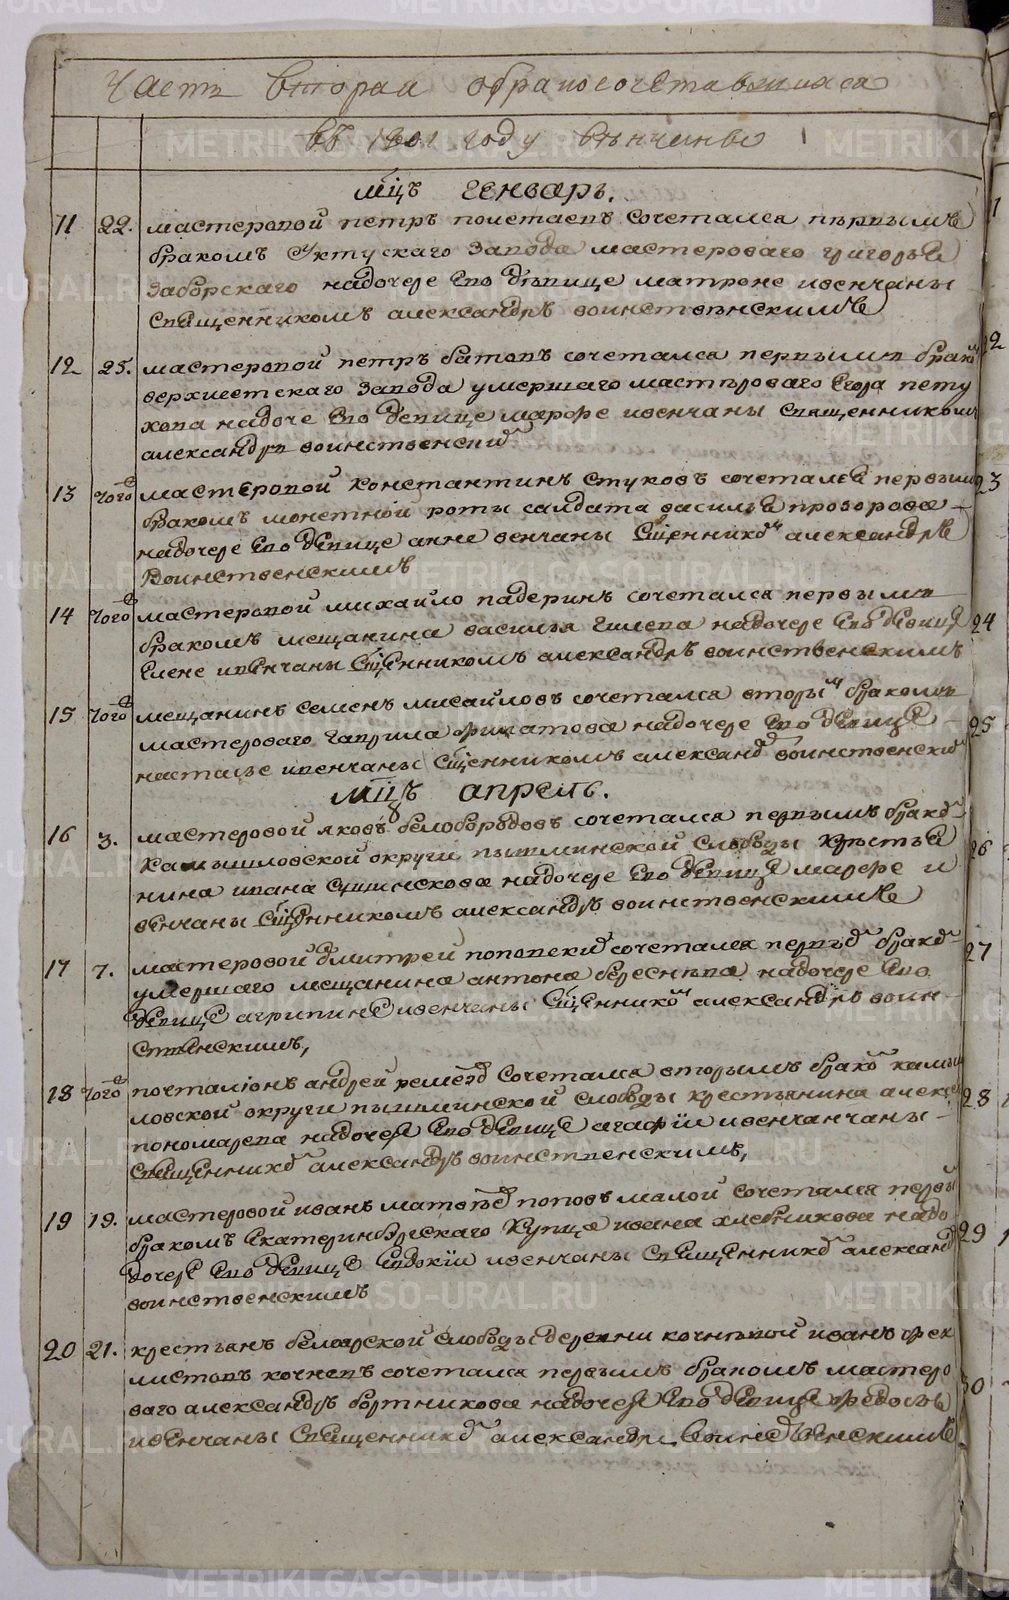 Часть вторая обракосочетавшихся
въ 1801 году венчаны
мцъ генварь.
11 22. мастеровой петръ полетаевъ сочетался первымъ
бракомъ Уктускаго завода мастероваго григорья
Заборскаго надочере ево девице матроне ивенчаны
священникомъ александръ воинственскимъ
12 25. мастеровой петръ батовъ сочетался первымъ брако
верхисетскаго завода умершаго мастероваго Егора пету
хова надоче ево девице марфе ивенчаны священником
александръ воинственски
13 того мастеровой константинъ стуковъ сочетался первым
бракомъ монетной роты салдата василья прозорова
надочере ево девице анне венчаны сщенником александръ
Воинственскимъ
14 того мастеровой михайло падеринъ сочетался первымъ
бракомъ мещанина василья гилева надочере ево девице
Елене ивенчаны сщенникомъ александръ воинственскимъ
15 того мещанинъ семенъ мисайловъ сочетался вторы бракомъ
мастероваго гаврила филатова надочере ево девице
настасье ивенчаны сщенникомъ александ воинственски
мцъ апрель.
16 3. мастеровой яковъ белобородовъ сочетался первымъ брако
Камышловской округи пышминской слободы крестья
нина ивана надочере ево девице марфе и
венчаны сщенникомъ александръ воинственскимъ
17 7. мастеровой дмитрей сочетался первы брако
умершаго мещанина антона береснева надочере ево
девице агрипине ивенчаны сщенником александръ воин
ственскимъ,
18 того почталионъ андрей сочетался вторымъ брако камы
ловской округи пышминской слободы крестьянина алексе
пономарева надочеря ево девице агафьи ивенчанчаны
священнико александръ воинственскимъ,
19 19. мастеровой иванъ попов малой сочетался первы
бракомъ екатеринбургскаго купца ивана хлебникова надо
дочере ево девице евдокии ивенчаны священнико александ
воинственскимъ
20 21. крестьянъ белоярской слободы деревни кочневой иванъ фек
листовъ кочневъ сочетался первымъ бракомъ мастеро
ваго александръ бортникова надочеря ево девице федосье
ивенчаны священнико александръ воинственскимъ
1
22
23
24
25
26
27
28
29
30